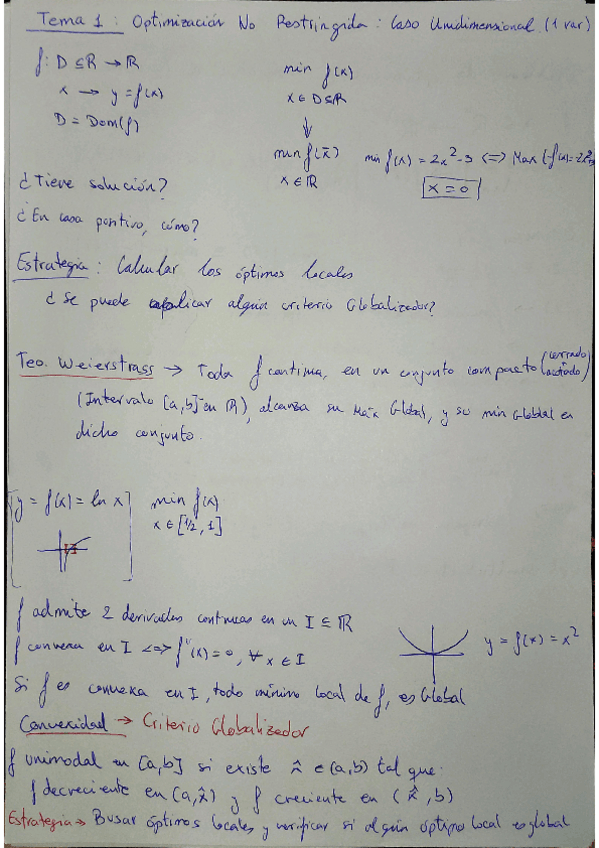 Tema 1: Optimización No Restringida: Caso Unidimensional. (1 var)
f: D ⊆ ℝ → ℝ
min f(x)
x → y = f(x)
x ∈ D ⊆ ℝ
D = Dom(f)
↓
min f(x)
x ∈ ℝ
min f(x) = 2x² - 3 <=> Max (-f(x) = -2x²
x = 0
¿Tiene solución?
¿En caso positivo, cómo?
Estrategia: Calcular los óptimos locales
¿Se puede aplicar algún criterio Globalizador?
Teo. Weierstrass → Toda f continua, en un conjunto compacto (cerrado
acotado)
(Intervalo [a,b] en ℝ), alcanza su Máx Global, y su min Global en
dicho conjunto.
y = f(x) = ln x
min f(x)
x ∈ [1/2, 1]
f admite 2 derivadas continuas en un I ⊆ ℝ
f convexa en I <=> f''(x) = 0, ∀ x ∈ I
y = f(x) = x²
Si f es convexa en I, todo mínimo local de f, es Global
Convexidad → Criterio Globalizador
f unimodal en [a,b] si existe x̂ ∈ (a,b) tal que:
f decreciente en (a,x̂) y f creciente en (x̂,b)
Estrategia → Busar óptimos locales y verificar si algún óptimo local es global